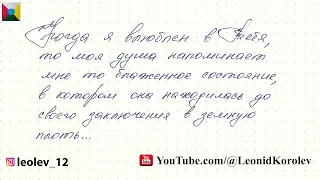 Когда я влюблен в Тебя,
то моя душа напоминает
мне то блаженное состояние,
в котором она находилась до
своего заключения в земную
плоть...
leolev_12
YouTube.com/@LeonidKorolev